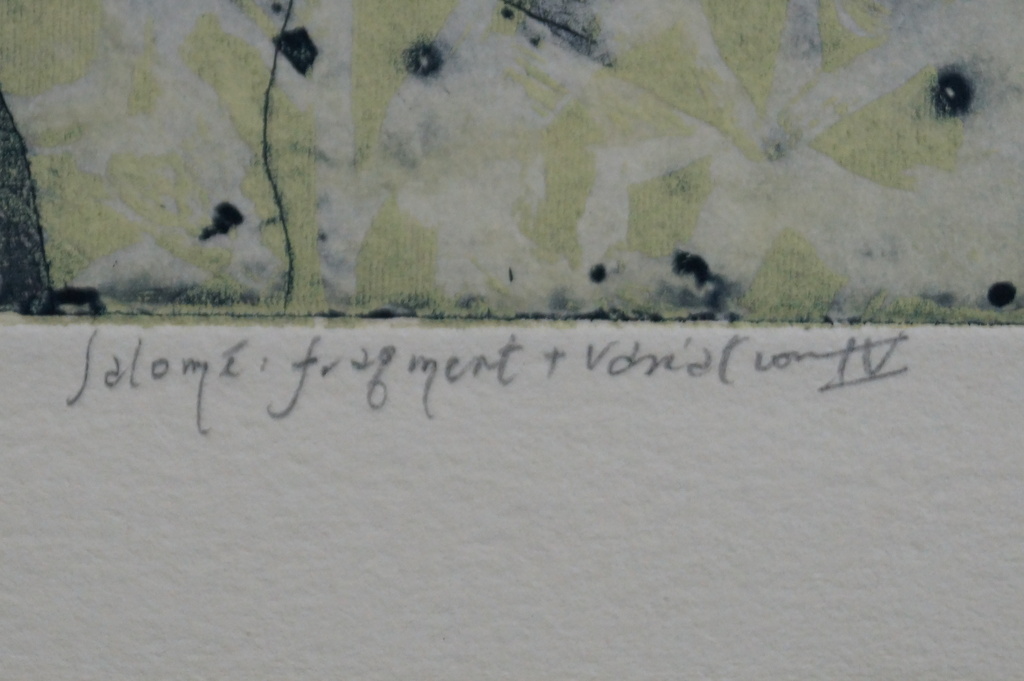 Salomé. fragment + variation IV